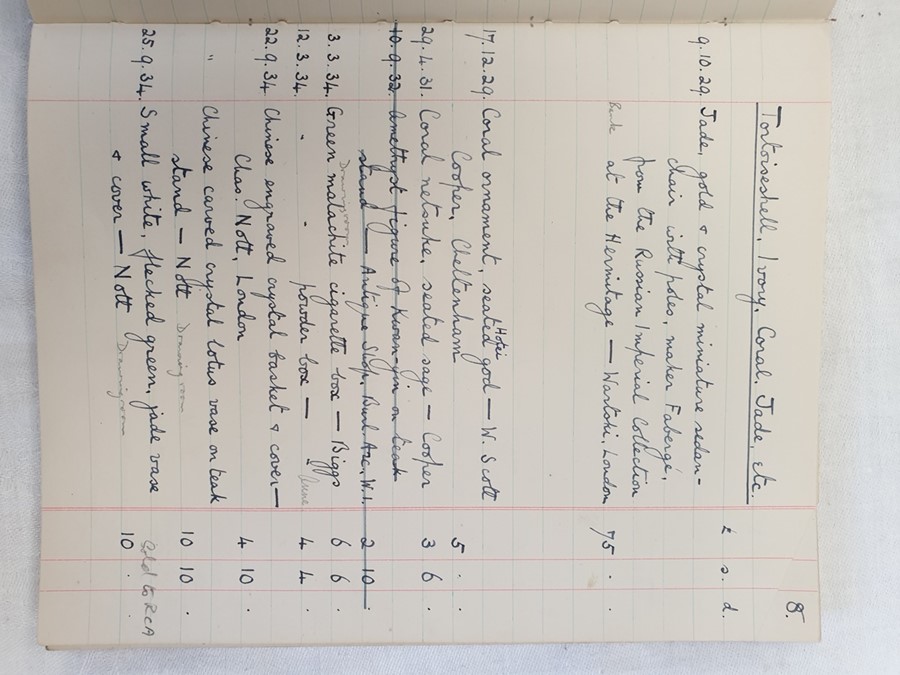 8.
Tortoiseshell, Ivory, Coral, Jade, etc.
£ s. d.
9.10.29. Jade, gold & crystal miniature sedan-
chair with poles, maker Fabergé,
from the Russian Imperial Collection
Bank at the Hermitage — Wartski, London 75 . .
17.12.29. Coral ornament, seated Hotei god — W. Scott
Cooper, Cheltenham 5 . .
29.4.31. Coral netsuke, seated sage — Cooper 3 6 .
10.9.32. Amethyst figure of Kwan-yin on teak
stand — Antique Shop, Burl. Arc, W.1. 2 10 .
Drawingroom
3.3.34. Green malachite cigarette box — Biggs 6 6 .
12.3.34. " " powder box — " 4 4 .
22.9.34 Chinese engraved crystal basket & cover —
Chas. Nott, London 4 10 .
" Chinese carved crystal lotus vase on teak
stand — Nott Drawingroom 10 10 .
25.9.34. Small white, flecked green, jade vase Sold to RCA
& cover — Nott Drawingroom 10 . .